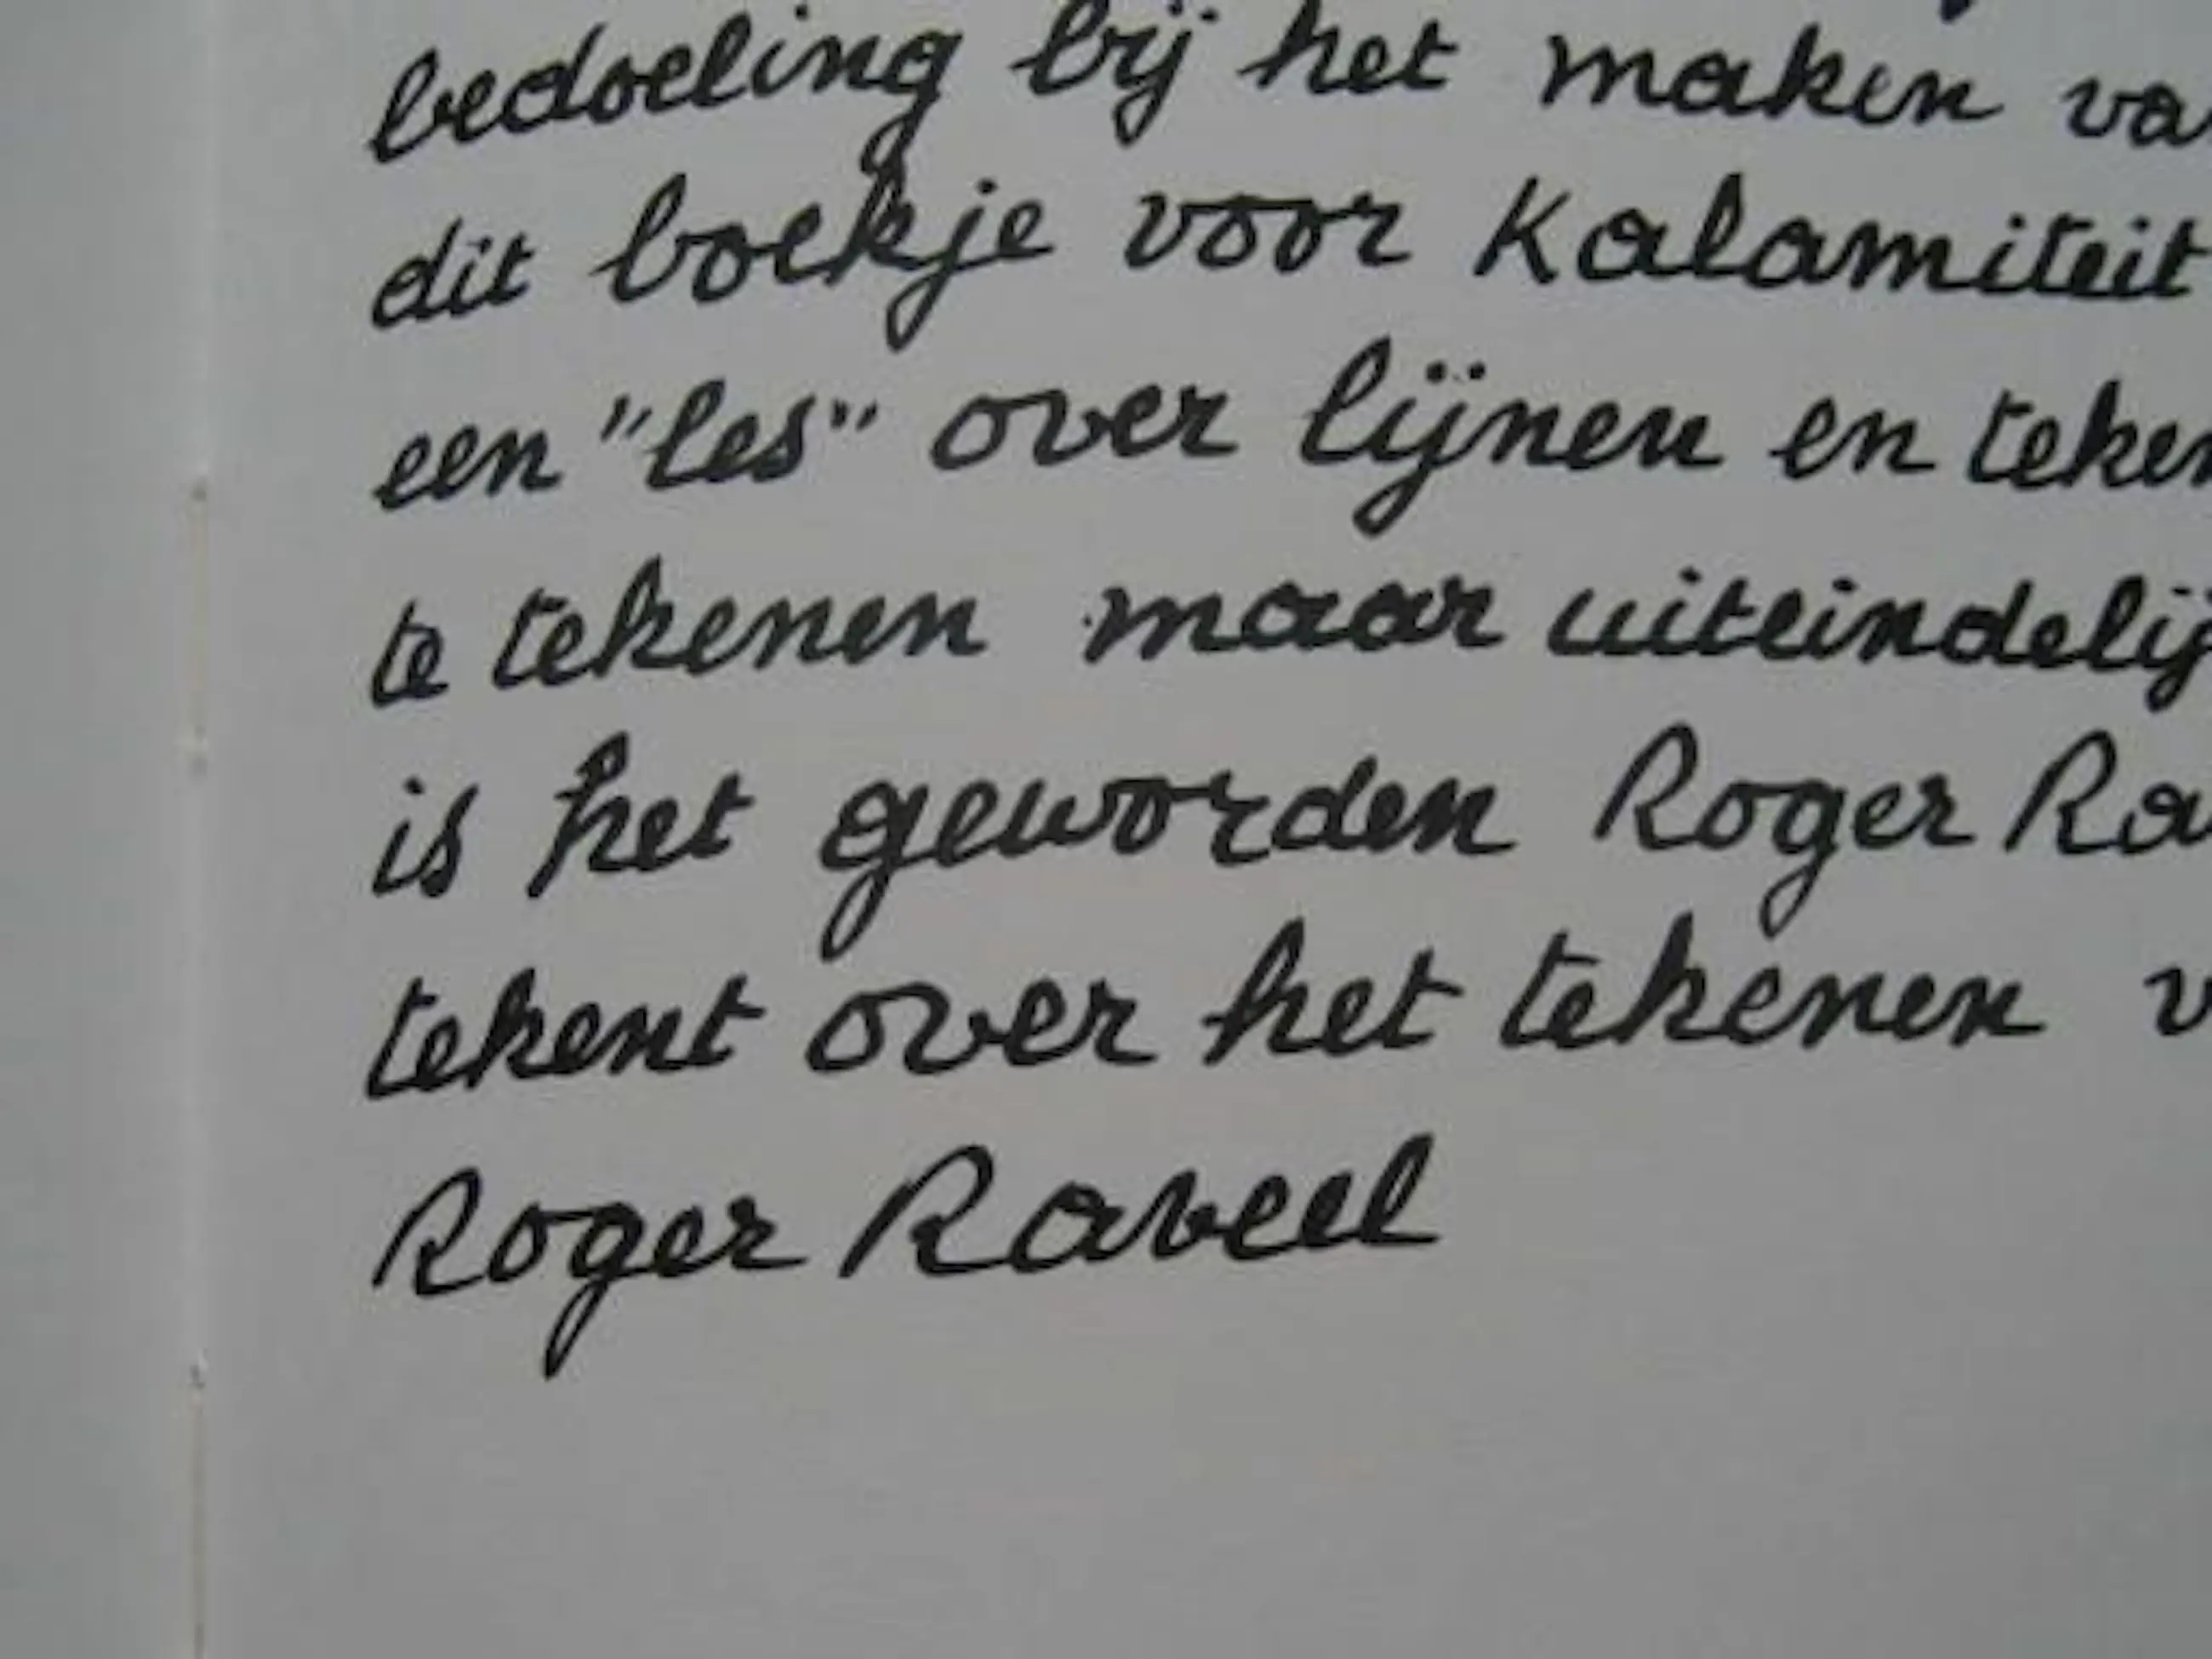 bedoeling bij het maken va
dit boekje voor Kalamiteit
een "les" over lijnen en teken
te tekenen maar uiteindelij
is het geworden Roger Ra
tekent over het tekenen v
Roger Raveel